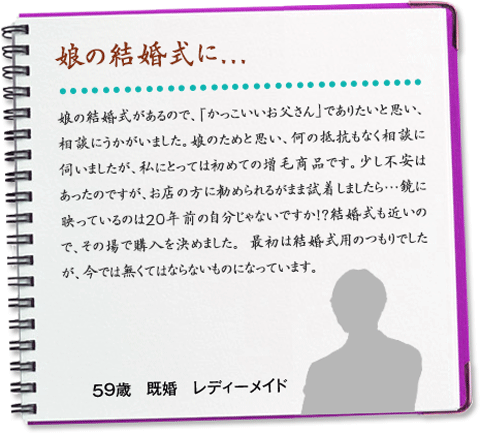 娘の結婚式に...
娘の結婚式があるので、「かっこいいお父さん」でありたいと思い、
相談にうかがいました。娘のためと思い、何の抵抗もなく相談に
伺いましたが、私にとっては初めての増毛商品です。少し不安は
あったのですが、お店の方に勧められるがまま試着しましたら…鏡に
映っているのは20年前の自分じゃないですか!?結婚式も近いの
で、その場で購入を決めました。 最初は結婚式用のつもりでした
が、今では無くてはならないものになっています。
59歳 既婚 レディーメイド